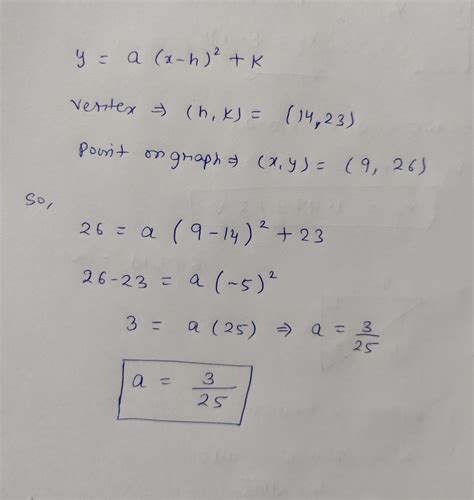 y = a (x-h)² + k
vertex ⇒ (h, k) = (14, 23)
point on graph ⇒ (x, y) = (9, 26)
So,
26 = a (9-14)² + 23
26-23 = a (-5)²
3 = a (25) ⇒ a = 3/25
a = 3/25